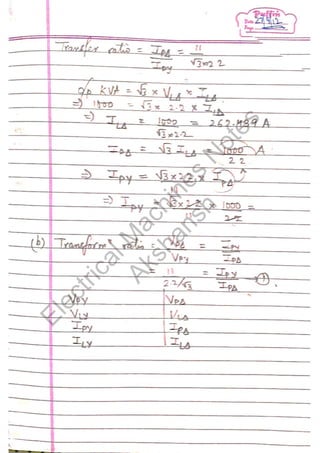 Transfer ratio = IPΔ / IPY = 11 / √3×2.2
o/p KVA = √3 × VLΔ × ILΔ
=) 1000 = √3 × 2.2 × ILΔ
=) ILΔ = 1000 / √3×2.2 = 262.439 A
IPΔ = √3 ILΔ = 1000 / 2.2 A
=) IPY = √3×2.2 / 11 × IPΔ
=) IPY = √3×2.2 / 11 × 1000 / 2.2 =
(b) Transform ratio = VPΔ / VPY = IPY / IPΔ
= 11 / 2.2/√3 = IPY / IPΔ —①.
VPY VPΔ
VLY VLΔ
IPY IPΔ
ILY ILΔ
Electrical Machines Notes
Akshansh